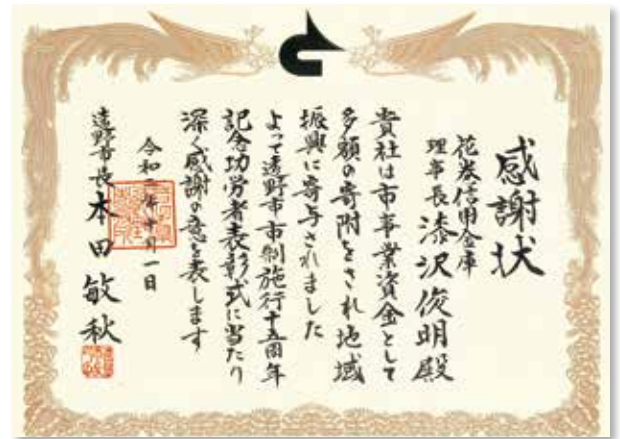 感謝状
花巻信用金庫
理事長 漆沢俊明殿
貴社は市事業資金として
多額の寄附をされ地域
振興に寄与されました
よって遠野市市制施行十五周年
記念功労者表彰式に当たり
深く感謝の意を表します
令和二年十月一日
遠野市長 本田敏秋